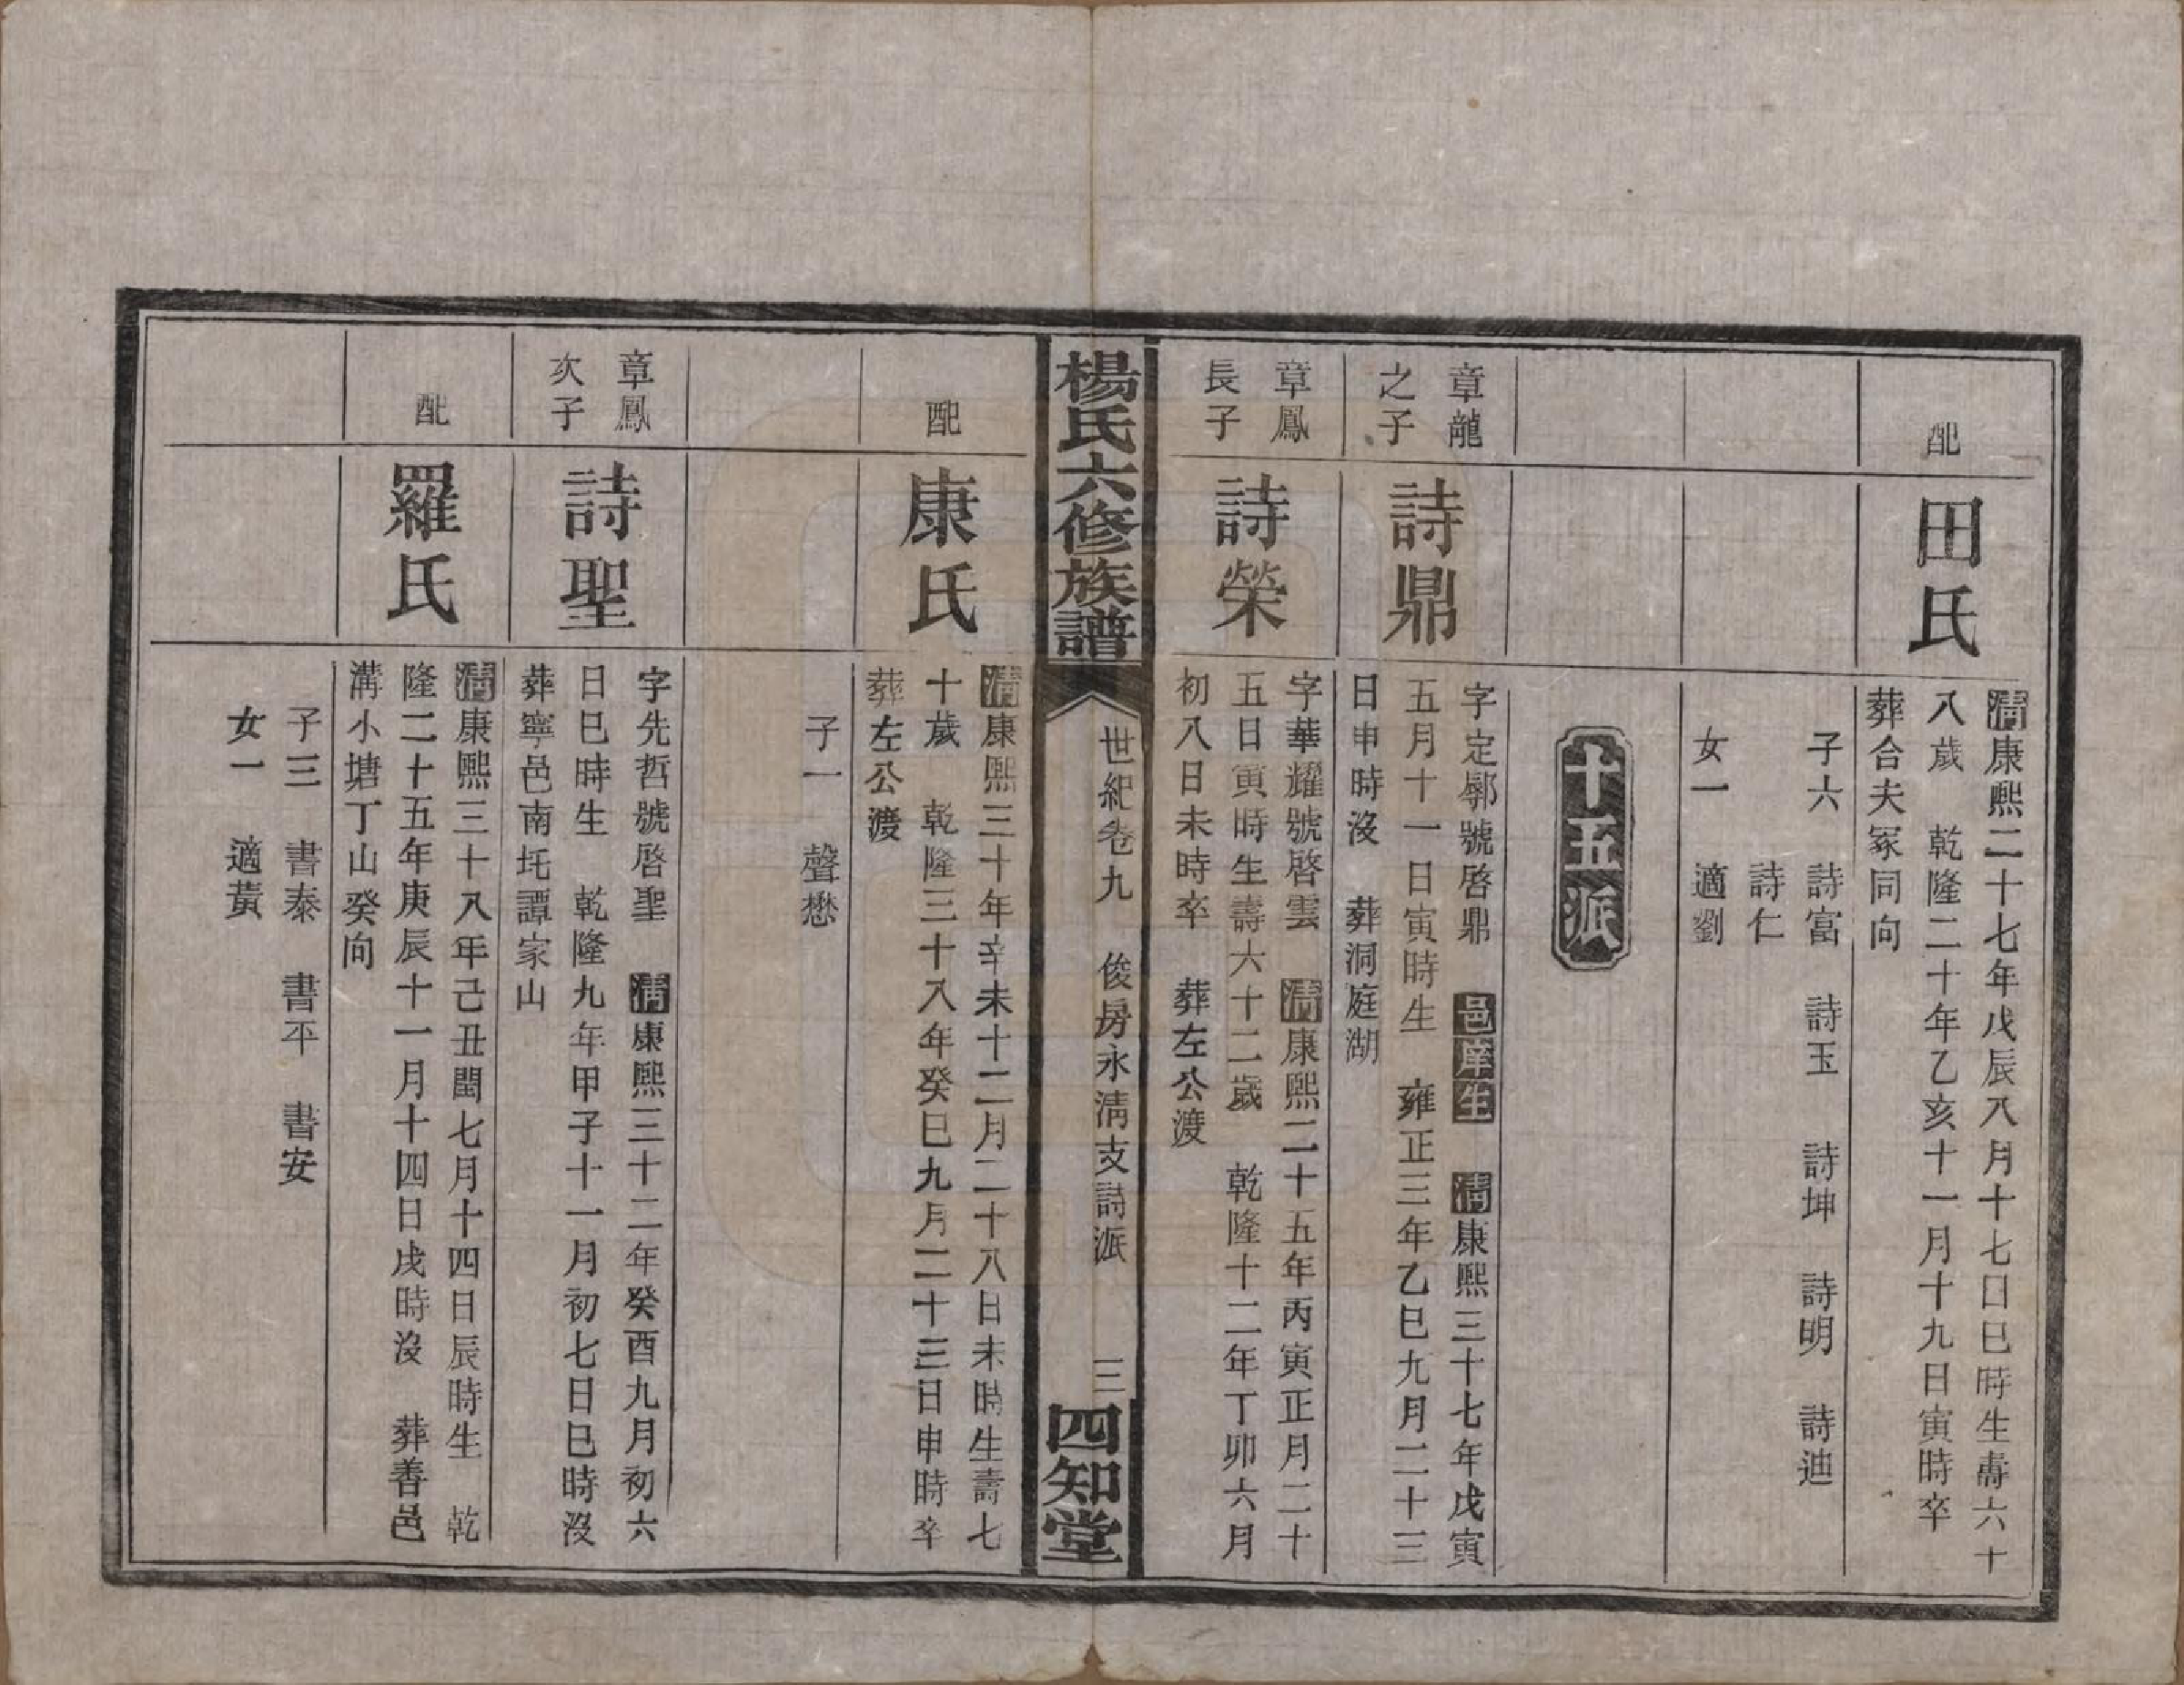 配
田氏
清康熙二十七年戊辰八月十七日巳時生壽六十
八歲　乾隆二十年乙亥十一月十九日寅時卒
葬合夫冢同向
子六　詩富　詩玉　詩坤　詩明　詩迪
詩仁
女一　適劉
十五派
章龍
之子
詩鼎
字定鄢號啓鼎　邑庠生　清康熙三十七年戊寅
五月十一日寅時生　雍正三年乙巳九月二十三
日申時沒　葬洞庭湖
章鳳
長子
詩榮
字華耀號啓雲　清康熙二十五年丙寅正月二十
五日寅時生壽六十二歲　乾隆十二年丁卯六月
初八日未時卒　葬左公渡
楊氏六修族譜
世紀卷九　俊房永清支詩派　三
四知堂
配
康氏
清康熙三十年辛未十二月二十八日未時生壽七
十歲　乾隆三十八年癸巳九月二十三日申時卒
葬左公渡
子一　聲懋
章鳳
次子
詩聖
字先哲號啓聖　清康熙三十二年癸酉九月初六
日巳時生　乾隆九年甲子十一月初七日巳時沒
葬寧邑南圫譚家山
配
羅氏
清康熙三十八年己丑閏七月十四日辰時生　乾
隆二十五年庚辰十一月十四日戌時沒　葬善邑
溝小塘丁山癸向
子三　書泰　書平　書安
女一　適黃